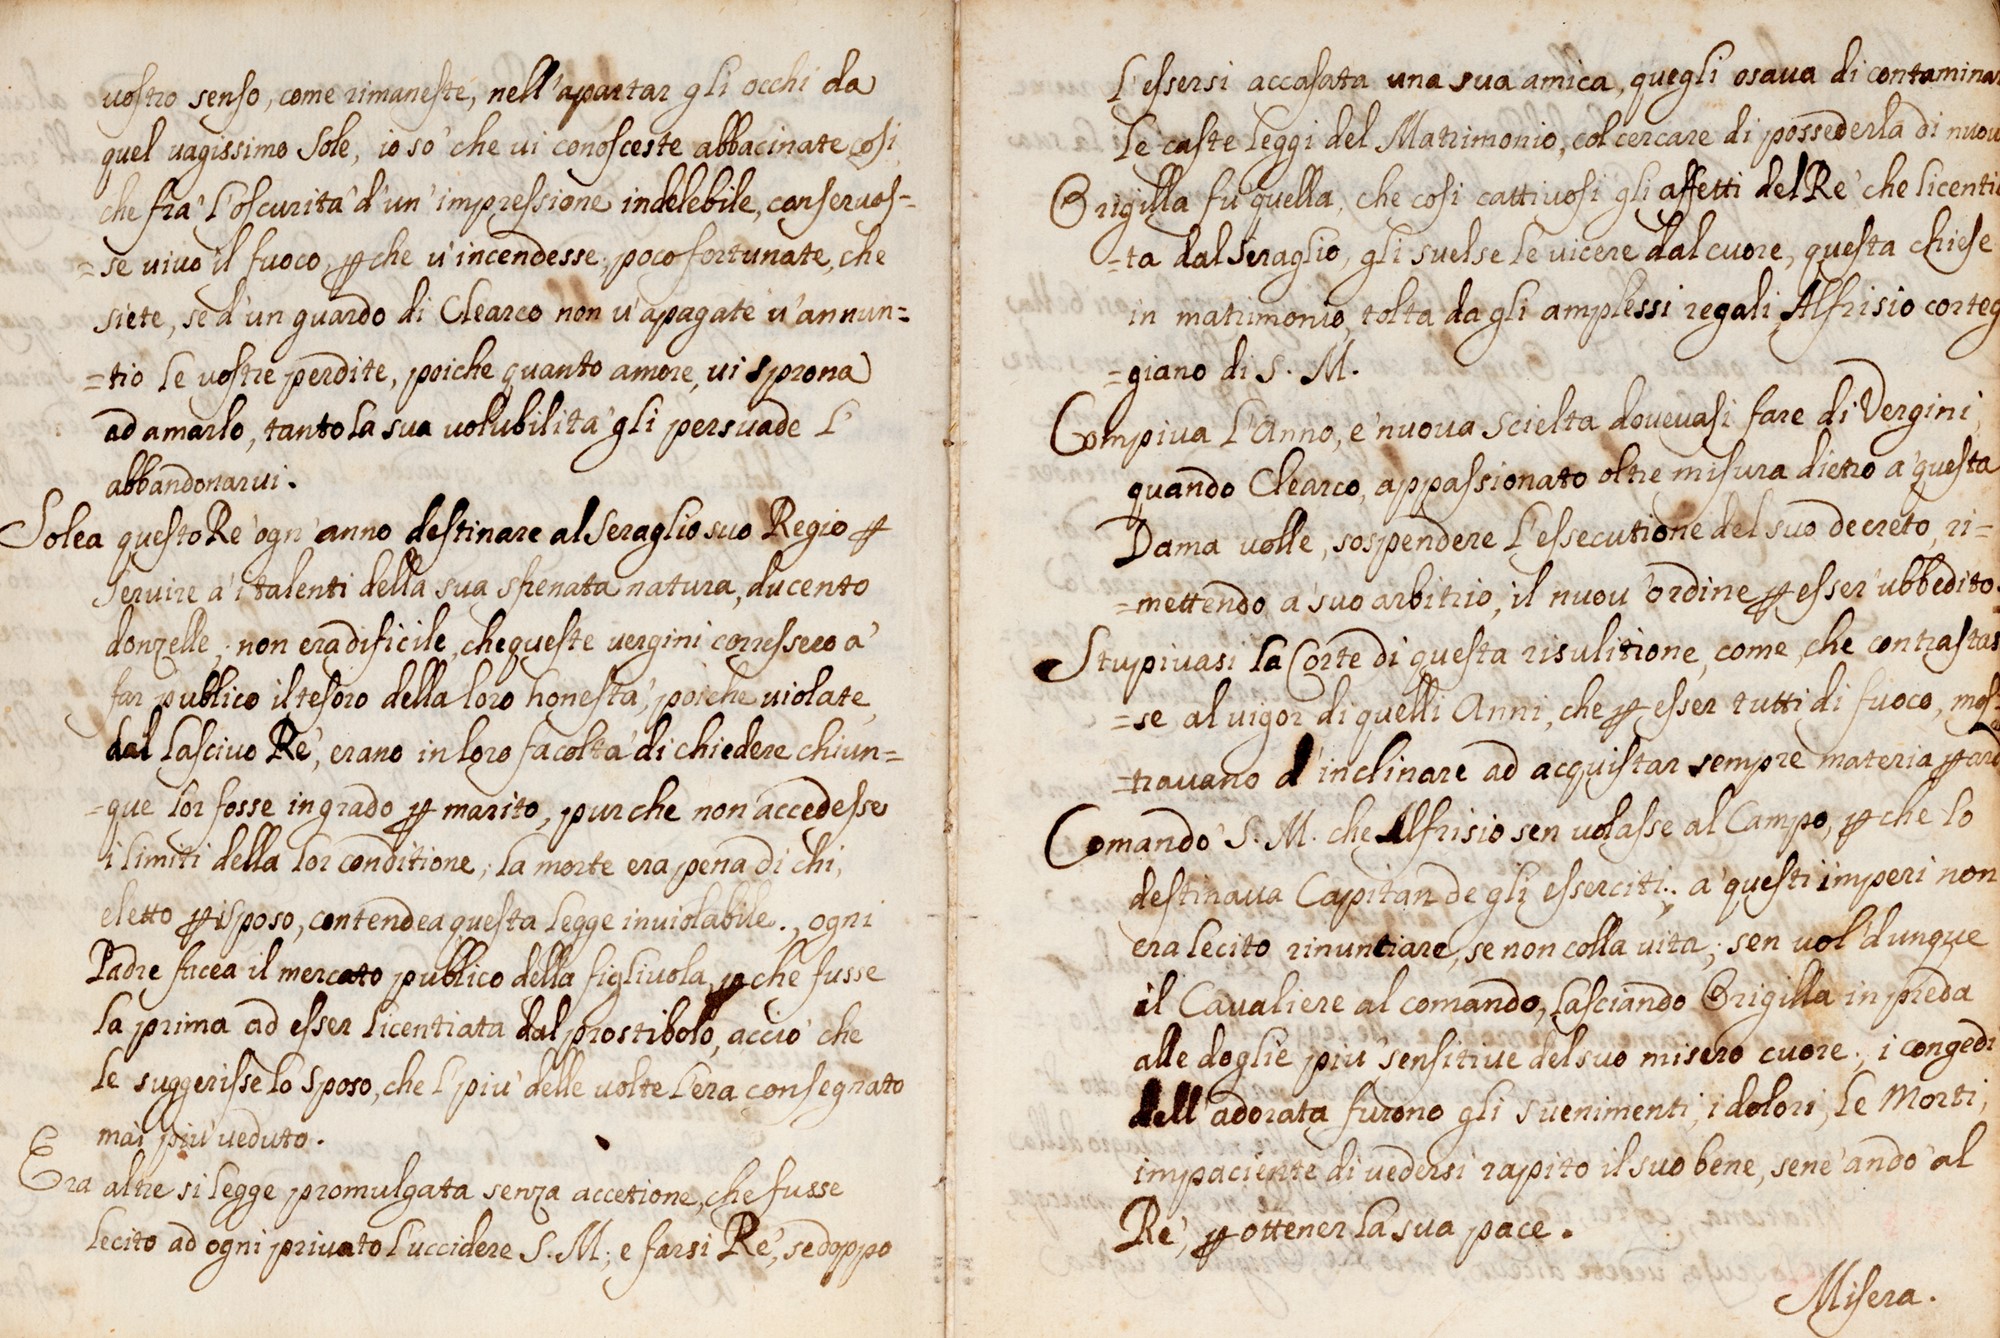 uostro senso, come rimaneste, nell'apartar gli occhi da
quel uagissimo Sole, io sò che ui conosceste abbacinate così
che frà l'oscurità d'un'impressione indelebile, conseruas-
=se uiuo il fuoco, ꝑche u'incendesse; poco fortunate, che
siete, se d'un guardo di Clearco non u'apagate u'annun=
=tio le uostre perdite, poiche quanto amore, ui sprona
ad amarlo, tanto la sua uolubilità gli persuade l'
abbandonarui.
Solea questo Rè ogn'anno destinare al Seraglio suo Regio ꝑ
seruire à i talenti della sua sfrenata natura, ducento
donzelle; non era dificile, che queste uergini corressero à
far publico il tesoro della loro honestà, poiche uiolate
dal lasciuo Rè, erano in loro facoltà di chiedere chiun=
=que lor fosse in grado ꝑ marito, pur che non accedesse
i limiti della lor conditione; la morte era pena di chi,
eletto ꝑ isposo, contendea questa legge inuiolabile., ogni
Padre facea il mercato publico della figliuola, ꝑche fusse
la prima ad esser licentiata dal prostibolo, acciò che
le suggerisse lo sposo, che l' più delle uolte l'era consegnato
mai più ueduto.
Era altresi legge promulgata senza accetione, che fusse
lecito ad ogni priuato l'uccidere S. M; e farsi Rè, se doppo
l'essersi accasata una sua amica, quegli osaua di contaminar
le caste leggi del Matrimonio, col cercare di possederla di nuou
Brigilla fu quella, che così cattiuosi gli affetti del Rè che licentia
=ta dal Seraglio, gli suelse le uicere dal cuore, questa chiese
in matrimonio, tolta da gli amplessi regali, Alfrisio corteg
=giano di S. M.
Compiua l'Anno, e nuoua scielta doueuasi fare di Vergini,
quando Clearco, appassionato oltre misura dietro a questa
Dama uolle, sospendere l'essecutione del suo decreto, ri=
=mettendo, a suo arbitrio, il nuou'ordine ꝑ esser'ubbedito.
Stupiuasi la Corte di questa risulitione, come, che contrastas
=se al uigor di quelli Anni, che ꝑ esser tutti di fuoco, mos=
=trauano d'inclinare ad acquistar sempre materia ꝑ ard
Comandò S. M. che Alfrisio sen uolasse al Campo, ꝑche lo
destinaua Capitan de gli esserciti; a questi imperi non
era lecito rinuntiare, se non colla uita; sen uol'dunque
il Caualiere al comando, lasciando Brigilla in preda
alle doglie più sensitiue del suo misero cuore; i congedi
dell'adorata furono gli suenimenti, i dolori, le Morti,
impaciente di uedersi rapito il suo bene, sene andò al
Rè, ꝑ ottener la sua pace.
Misera.